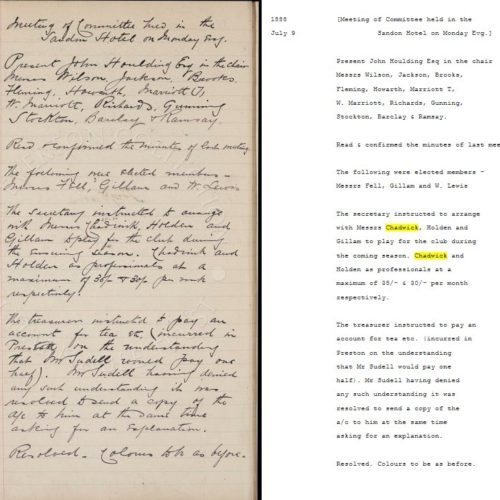 Meeting of Committee held in the
Sandon Hotel on Monday Evg.
Present John Houlding Esq in the chair
Messrs Wilson, Jackson, Brooks
Fleming, Howarth, Marriott T,
W. Marriott, Richards, Gunning
Stockton, Barclay & Ramsay.
Read & confirmed the minutes of last meeting
The following were elected members -
Messrs Fell, Gillam and W. Lewis
The Secretary instructed to arrange
with Messrs Chadwick, Holden and
Gillam to play for the club during
the ensuing season. Chadwick and
Holden as professionals at a
maximum of & 30/- per
respectively.
The treasurer instructed to pay an
account for tea etc (incurred in
Preston on the understanding
that Mr Sudell would pay one
half). Mr Sudell having denied
any such understanding it was
resolved to send a copy of the
a/c to him at the same time
asking for an explanation.
Resolved. Colours to be as before.
1888 [Meeting of Committee held in the
July 9 Sandon Hotel on Monday Evg.]
Present John Houlding Esq in the chair
Messrs Wilson, Jackson, Brooks,
Fleming, Howarth, Marriott T,
W. Marriott, Richards, Gunning,
Stockton, Barclay & Ramsay.
Read & confirmed the minutes of last mee
The following were elected members -
Messrs Fell, Gillam and W. Lewis
The secretary instructed to arrange
with Messrs Chadwick, Holden and
Gillam to play for the club during
the coming season. Chadwick and
Holden as professionals at a
maximum of & 30/- per month
respectively.
The treasurer instructed to pay an
account for tea etc. (incurred in
Preston on the understanding
that Mr Sudell would pay one
half). Mr Sudell having denied
any such understanding it was
resolved to send a copy of the
a/c to him at the same time
asking for an explanation.
Resolved. Colours to be as before.